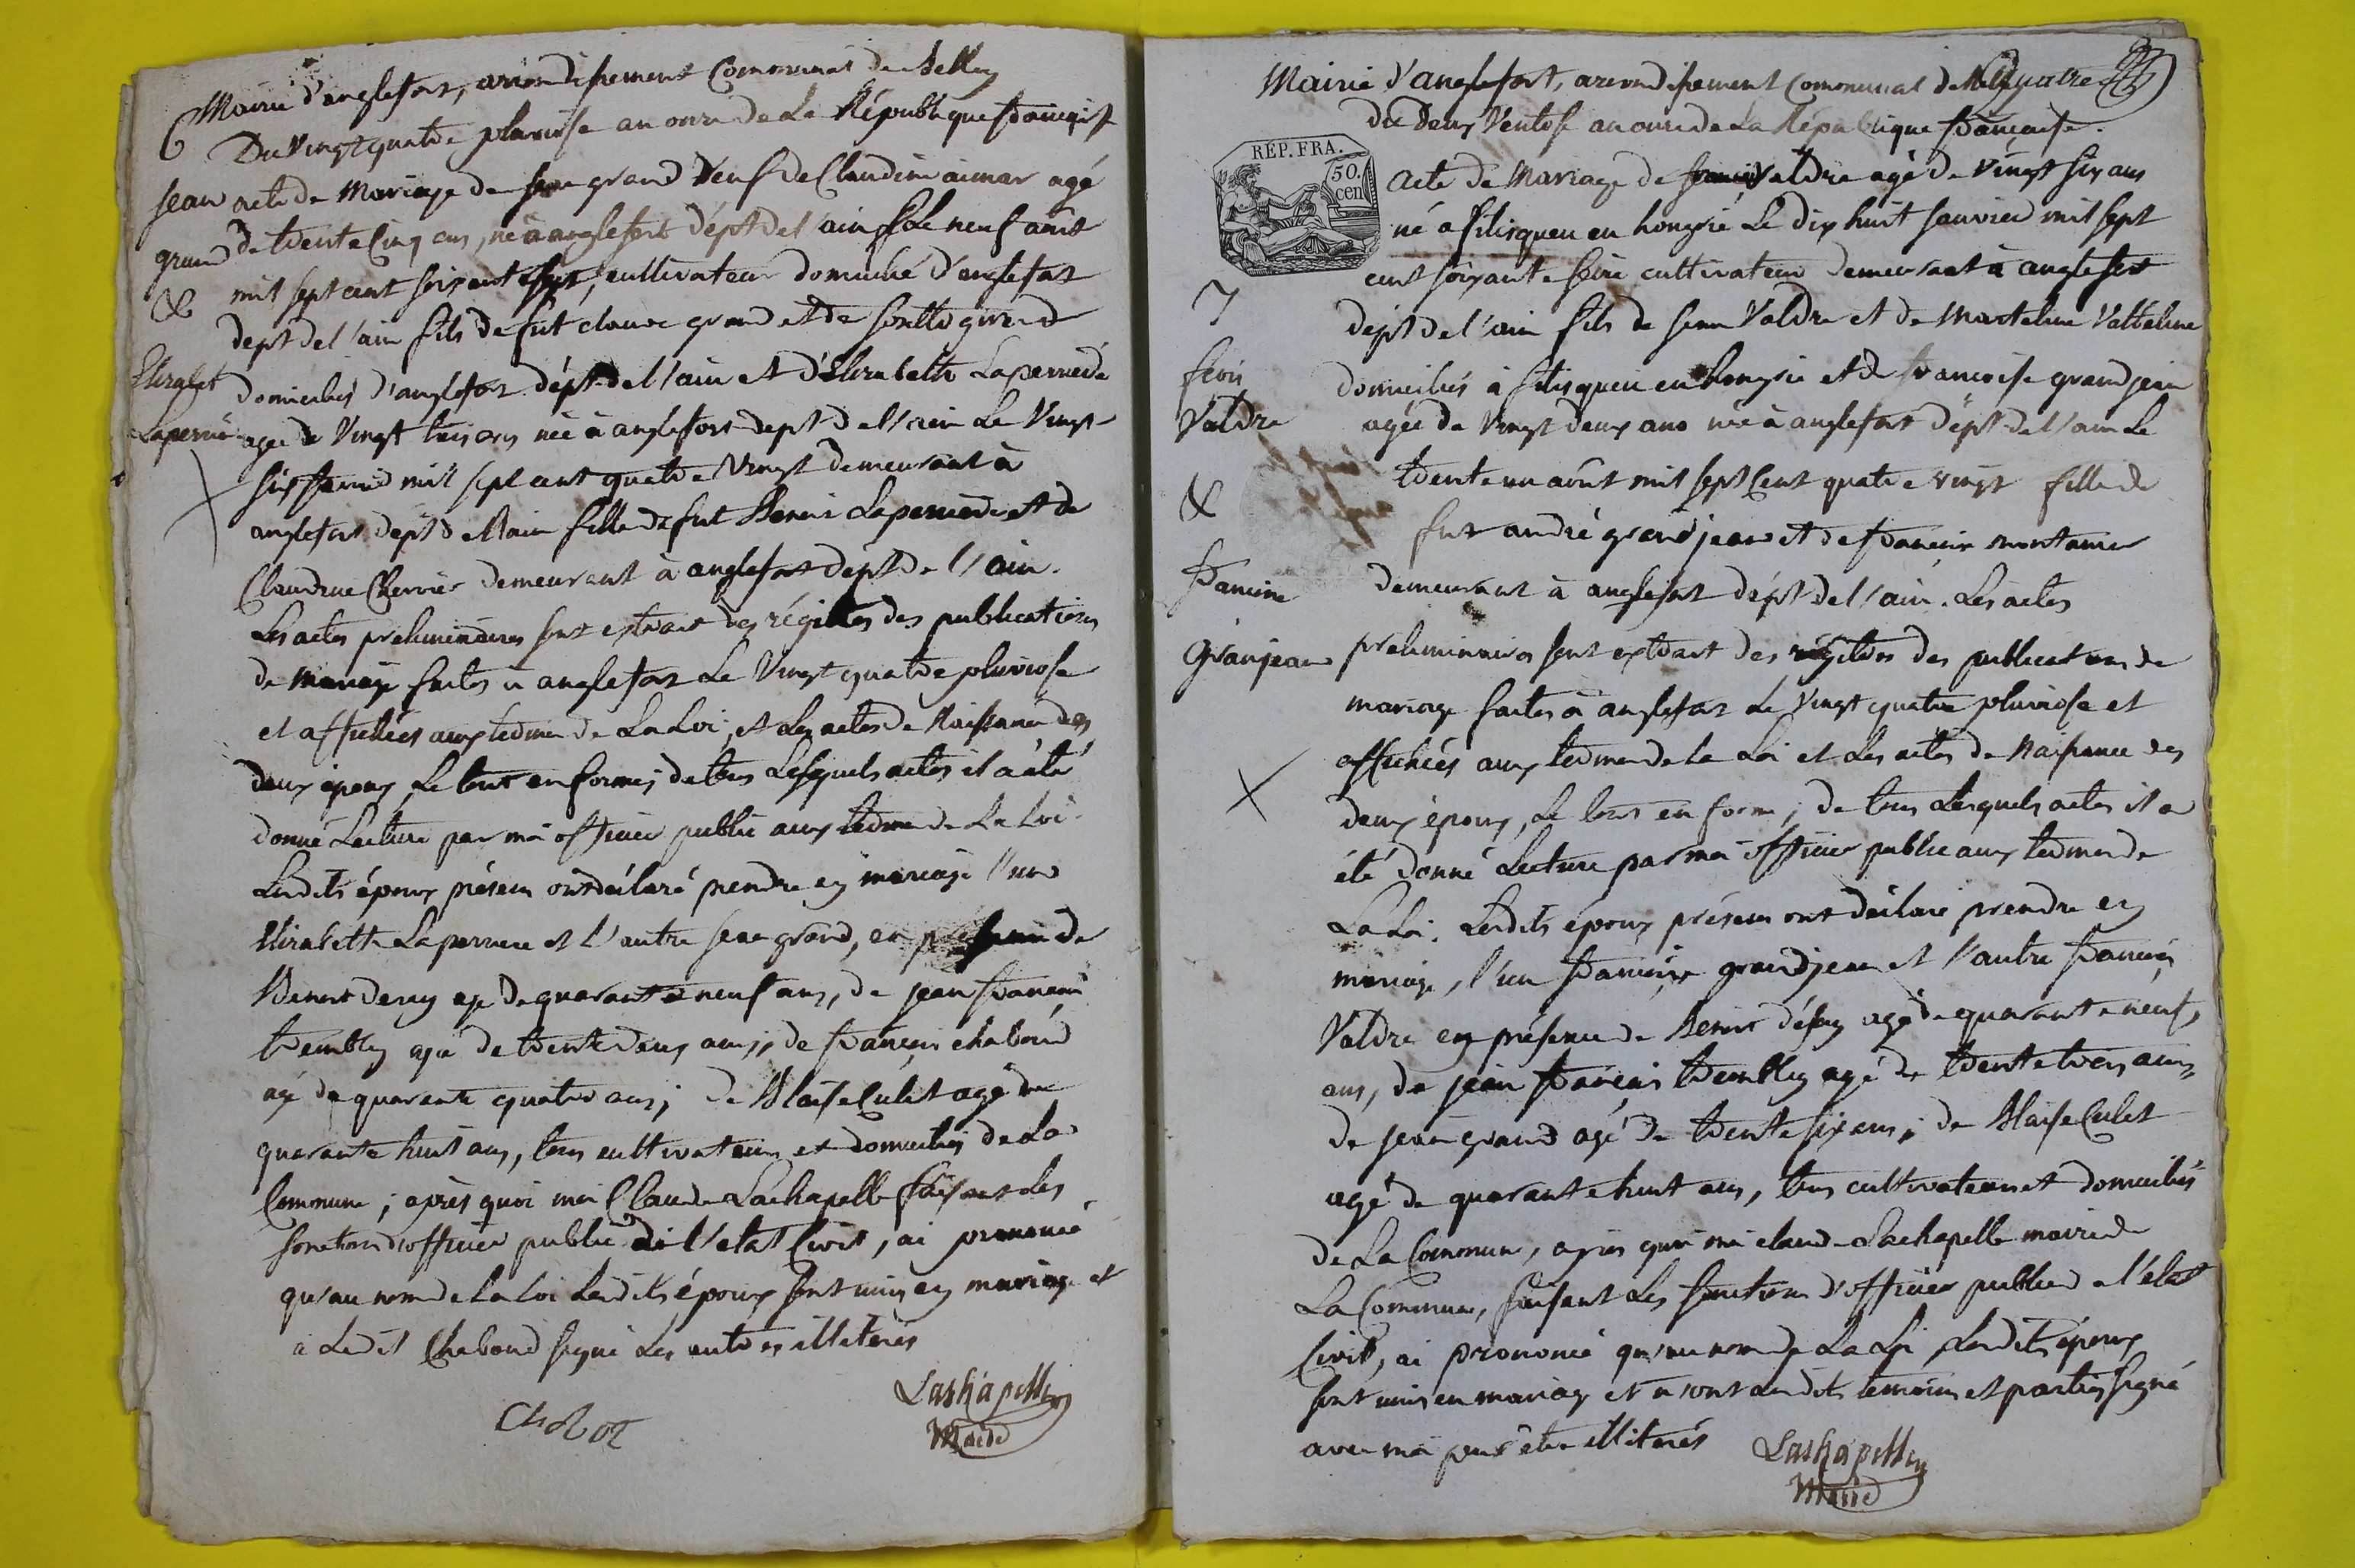 6
Mairie d'anglefort, arrondissement Communal de Belley
Du Vingt quatre pluviose an onze de La République française
Jean
grand
&
Elizabet
Laperrié
acte de Mariage de Jean grand Veuf de Claudine aimar agé
de trente cinq ans, né à anglefort dépt de l'ain le neuf août
mil sept cent soixante sept, cultivateur domicilié d'anglefort
dept de l'ain fils de fut claude grand et de
domiciliés d'anglefort dépt de l'ain et d'Elizabeth Laperrière
agée de Vingt trois ans née à anglefort dept de l'ain Le Vingt
six mil sept cent quatre Vingt demeurant à
anglefort dept de l'ain fille de fut Benoit Laperriere et de
Claudine Cherrier demeurant à anglefort dept de l'ain.
Les actes preliminaires sont extrait des régitres des publications
de mariage faites à anglefort Le Vingt quatre pluviose
et affichées aux termes de La Loi, et Les actes de Naissance des
deux époux, Le tout en forme; de tous Lesquels actes il a été
donné Lecture par moi officier public aux termes de La Loi.
Lesdits époux présens ont déclaré prendre en mariage l'un
Elizabeth Laperriere et L'autre Jean grand, en présence de
Benoit agé de quarante neuf ans, de jean françois
trembley agé de trente deux ans, de françois chaboud
agé de quarante quatre ans; de Blaise Culet agé de
quarante huit ans, tous cultivateurs et domiciliés de La
Commune; après quoi moi Claude Lachapelle faisant les
fonctions d'officier public de l'etat Civil, ai prononcé
qu'au nom de La Loi Lesdits époux sont unis en mariage et
a Ledit Chaboud signé Les autres illiterés
Lachapelle
Maire
Mairie d'anglefort, arrondissement Communal de Belley quatre
du deux Ventose an onze de La République française.
REP. FRA.
50.
cen
7
fcois
Valdre
&
francoise
Granjean
acte de Mariage de françois Valdre agé de Vingt six ans
né a filisqueu en hongrie Le dix huit Janvier mil sept
cent soixante seize cultivateur demeurant à anglefort
dépt de l'ain fils de Jean Valdre et de Marteline Valteline
domiciliés à filisqueu en hongrie et de francoise grandjean
agée de Vingt deux ans née à anglefort dépt de l'ain Le
trente un août mil sept Cent quatre vingt fille de
fut andré grandjean et de francoise montanier
demeurant à anglefort dépt de l'ain. Les actes
preliminaires sont extrait des régitres des publications de
mariage faites à anglefort Le Vingt quatre pluviose et
affichées aux termes de La Loi et Les actes de Naissance des
deux époux, Le tout en forme; de tous Lesquels actes il a
été donné Lecture par moi officier public aux termes de
La Loi. Lesdits époux présens ont déclaré prendre en
mariage, l'un francoise grandjean et l'autre françois
Valdre en présence de Benoit agé de quarante neuf
ans, de jean françois trembley agé de trente trois ans,
de jean grand agé de trente six ans; de Blaise Culet
agé de quarante huit ans, tous cultivateurs et domiciliés
de La Commune, après quoi moi claude Lachapelle maire de
La Commune, faisant Les fonctions d'officier public de l'etat
Civil, ai prononcé qu'au nom de La Loi Lesdits époux
sont unis en mariage et n'ont Lesdits temoins et parties signé
avec moi pour être illiterés
Lachapelle
Maire